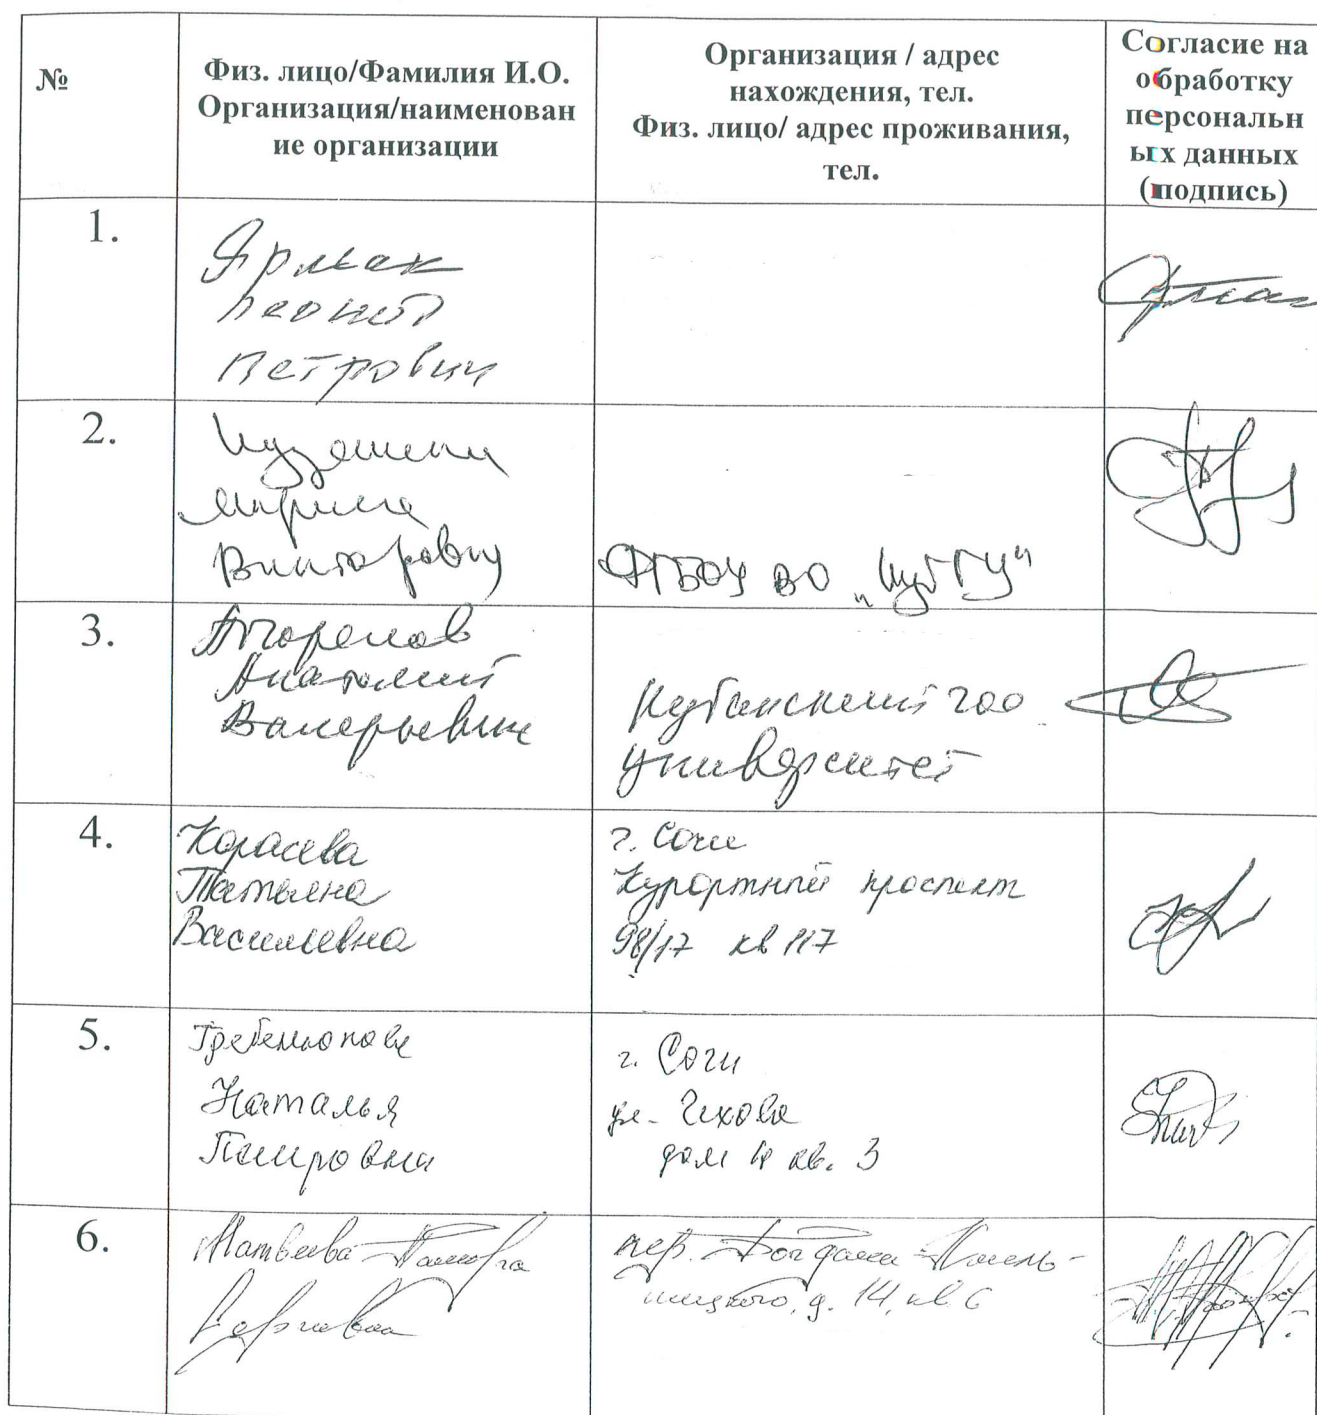 №
Физ. лицо/Фамилия И.О.
Организация/наименован
ие организации
Организация / адрес
нахождения, тел.
Физ. лицо/ адрес проживания,
тел.
Согласие на
обработку
персональн
ых данных
(подпись)
1.
Ярмак
Леонид
Петрович
2.
Марина
Викторовна
ФГБОУ ВО „КубГУ“
3.
Анатолий
Валерьевич
Кубанский гос
университет
4.
Карасева
Татьяна
Васильевна
г. Сочи
Курортный проспект
98/17 кв 117
5.
Наталья
г. Сочи
ул. Чехова
дом кв. 3
6.
Матвеева Тамара
Сергеевна
пер. Богдана Хмель-
ницкого, д. 14, кв. 6